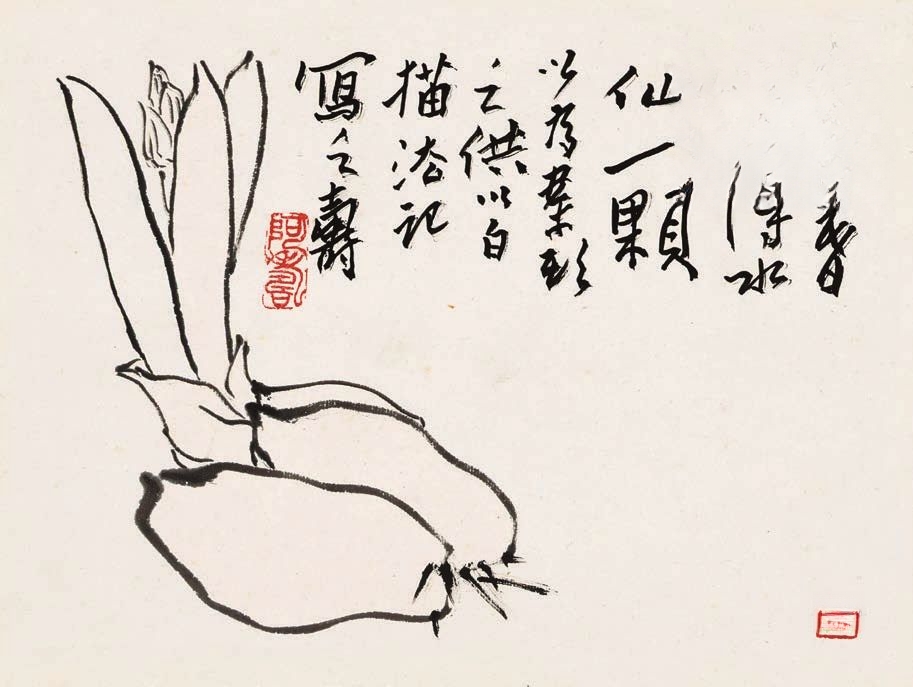 春
得水
仙一顆
以為案頭
之供以白
描法記
寫之壽
阿壽